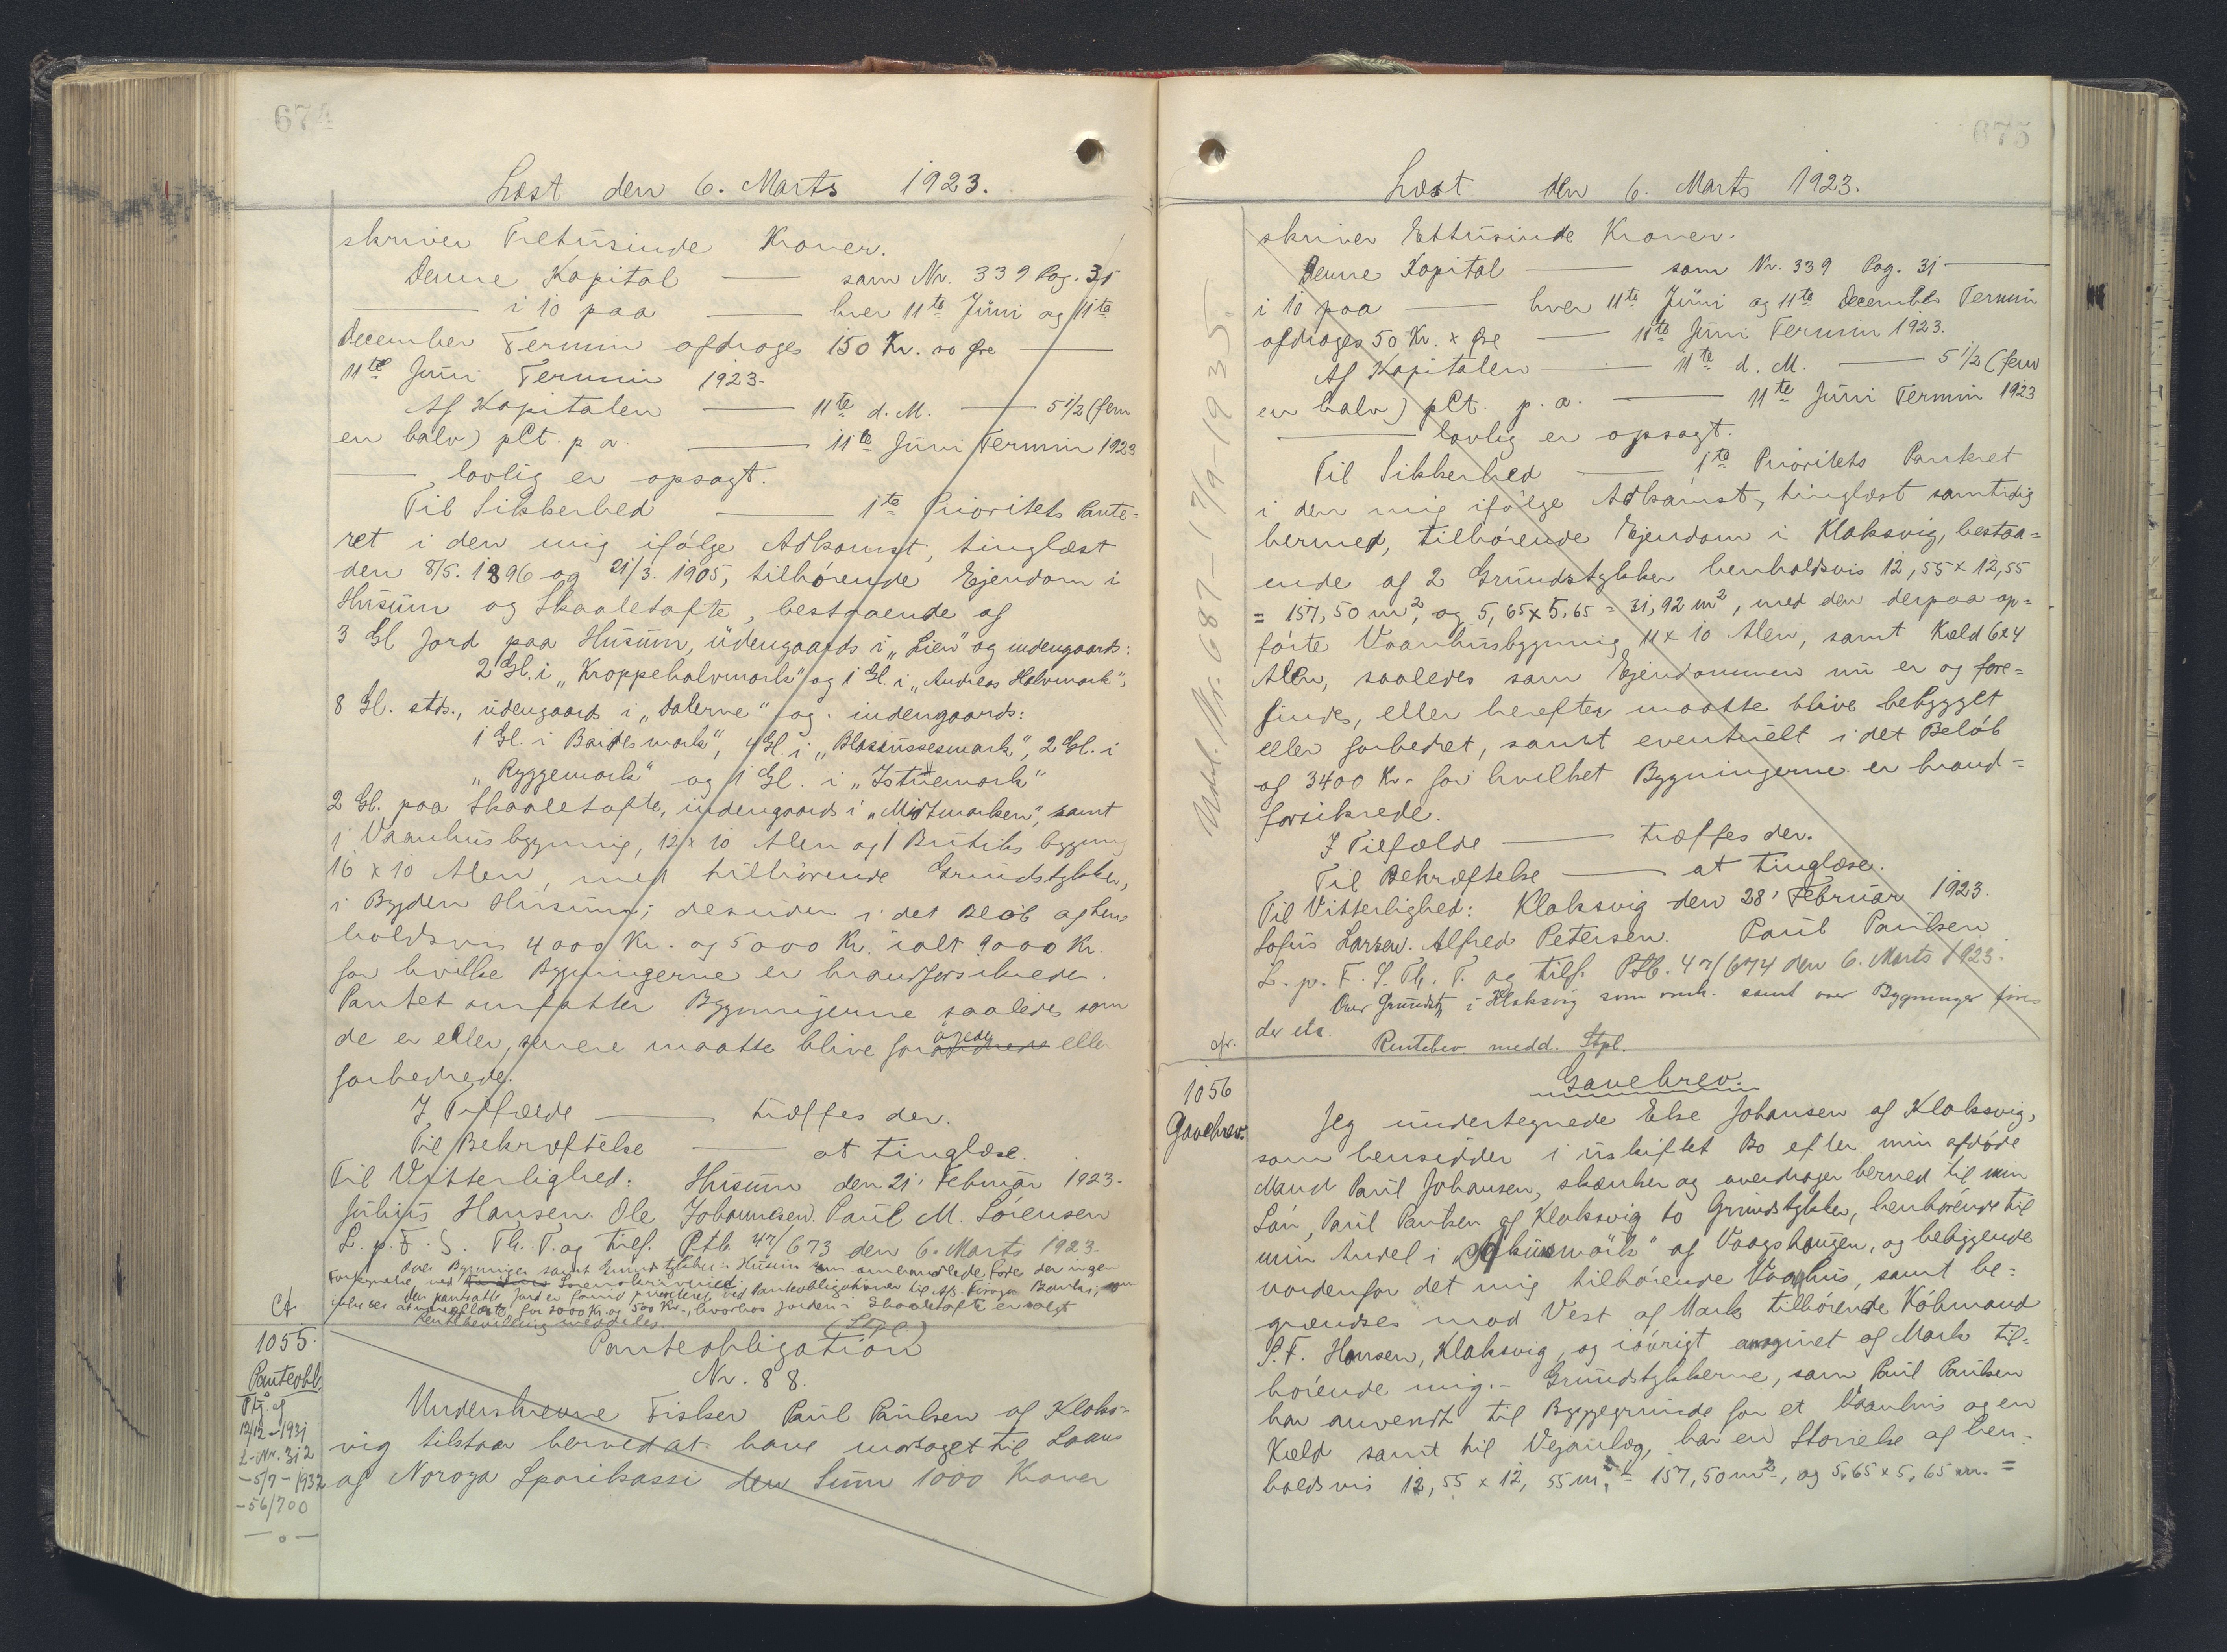 674
Læst den 6. Marts 1923.
skriver Tretusinde Kroner.
Denne Kapital — som Nr. 339 Pag. 31
— i 10 paa — hver 11te Juni og 11te
December Termin afdrages 150 Kr. 00 Øre —
11te Juni Termin 1923.
Af Kapitalen — 11te d. M. — 5 1/2 (fem
en halv) pCt. p. a. — 11te Juni Termin 1923
— lovlig er opsagt.
Til Sikkerhed — 1te Prioritets Pante=
ret i den mig ifølge Adkomst, tinglæst
den 8/5. 1896 og 21/3. 1905, tilhørende Ejendom i
Husum og Skaaletofte, bestaaende af
3 Gl. Jord paa Husum, udengaards i „Lien" og indengaards:
2 Gl. i „Kroppehalvmark" og 1 Gl. i „Andreas Halvmark",
8 Gl. stds., udengaards i „Dalerne" og indengaards:
1 Gl. i Bardesmark", 4 Gl. i „Blasiussesmark", 2 Gl. i
„Ryggemark" og 1 Gl. i „Istuemark"
2 Gl. paa Skaaletofte, udengaards i „Midtmarken", samt
1 Vaanhusbygning, 12 x 10 Alen og 1 Butiksbygning
16 x 10 Alen, med tilhørende Grundstykker,
i Bygden Husum; desuden i det Beløb af hen=
holdsvis 4000 Kr. og 5000 Kr. ialt 9000 Kr.
for hvilke Bygningerne er brandforsikrede.
Pantet omfatter Bygningerne saaledes som
de er eller senere maatte blive forøgede eller
forbedrede.
I Tilfælde — træffes der.
Til Bekræftelse — at tinglæse.
Til Vitterlighed: Husum den 21' Februar 1923.
Julius Hansen. Ole Johannesen. Paul M. Sørensen
L. p. F. S. Th. T. og tilf. Ptb. 47/673 den 6. Marts 1923.
over Bygninger samt Grundstykker i Husum som ommeldte findes der ingen
den pantsatte Jord er forud prioriteret ved Panteobligationer til A/S. Føroya Banki,
for 2000 Kr. og 500 Kr., hvorhos Jorden i Skaaletofte er solgt
Rentebevilling meddeles. (Stpl.)
Ct.
1055.
Panteobl.
Ptg. af
12/12-1931
L-Nr. 312
-5/7-1932
-56/700
— o —
Panteobligation
Nr. 88.
Underskrevne Fisker Paul Paulsen af Klaks=
vig tilstaar herved at have modtaget til Laans
af Noroya Sparikassi den Sum 1000 Kroner
675
Læst den 6. Marts 1923.
Udsl. Nr. 687 — 17/9-1935.
skriver Ettusinde Kroner.
Denne Kapital — som Nr. 339 Pag. 31 —
i 10 paa — hver 11te Juni og 11te December Termin
afdrages 50 Kr. x Øre — 11te Juni Termin 1923.
Af Kapitalen — 11te d. M. — 5 1/2 (fem
en halv) pCt. p. a. — 11te Juni Termin 1923
— lovlig er opsagt.
Til Sikkerhed — 1te Prioritets Panteret
i den mig ifølge Adkomst, tinglæst samtidig
hermed, tilhørende Ejendom i Klaksvig, bestaa=
ende af 2 Grundstykker henholdsvis 12,55 x 12,55
= 157,50 m², og 5,65 x 5,65 = 31,92 m², med den derpaa op=
førte Vaanhusbygning 11 x 10 Alen, samt Kæld 6x4
Alen, saaledes som Ejendommen nu er og fore=
findes, eller herefter maatte blive bebygget
eller forbedret, samt eventuelt i det Beløb
af 3400 Kr. for hvilket Bygningerne er brand=
forsikrede.
I Tilfælde — træffes der.
Til Bekræftelse — at tinglæse.
Til Vitterlighed: Klaksvig den 28' Februar 1923.
Sofus Larsen. Alfred Petersen. Paul Paulsen
L. p. F. S. Th. T. og tilf. Ptb. 47/674 den 6. Marts 1923.
Over Grundst. i Klaksvig som omh. samt over Bygninger fin=
der etc.
Rentebev. medd. Stpl.
cfr.
1056
Gavebrev.
Gavebrev.
Jeg undertegnede Else Johansen af Klaksvig,
som hensidder i uskiftet Bo efter min afdøde
Mand Paul Johansen, skænker og overdrager herved til min
Søn, Paul Paulsen af Klaksvig to Grundstykker, henhørende til
min Andel i af Vaagshaugen, og beliggende
nordenfor det mig tilhørende Vaanhus, samt be=
grændses mod Vest af Mark tilhørende Købmand
S. F. Hansen, Klaksvig, og iøvrigt omgivet af Mark til=
hørende mig. — Grundstykkerne, som Paul Paulsen
har anvendt til Byggegrunde for et Vaanhus og en
Kæld samt til Vejanlæg, har en Størrelse af hen=
holdsvis 12,55 x 12,55 m. = 157,50 m², og 5,65 x 5,65 m. =